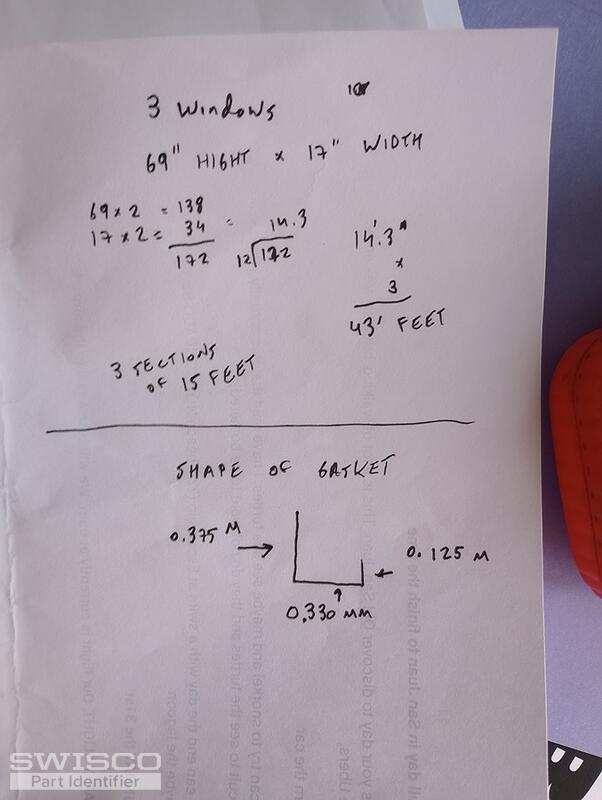 3 WINDOWS
69" HIGHT x 17" WIDTH
69 x 2 = 138
17 x 2 = 34
172
= 14.3
12 172
14'.3"
x
3
43' FEET
3 SECTIONS
OF 15 FEET
SHAPE OF GASKET
0.375 M
0.125 M
0.330 MM
SWISCO
Part Identifier